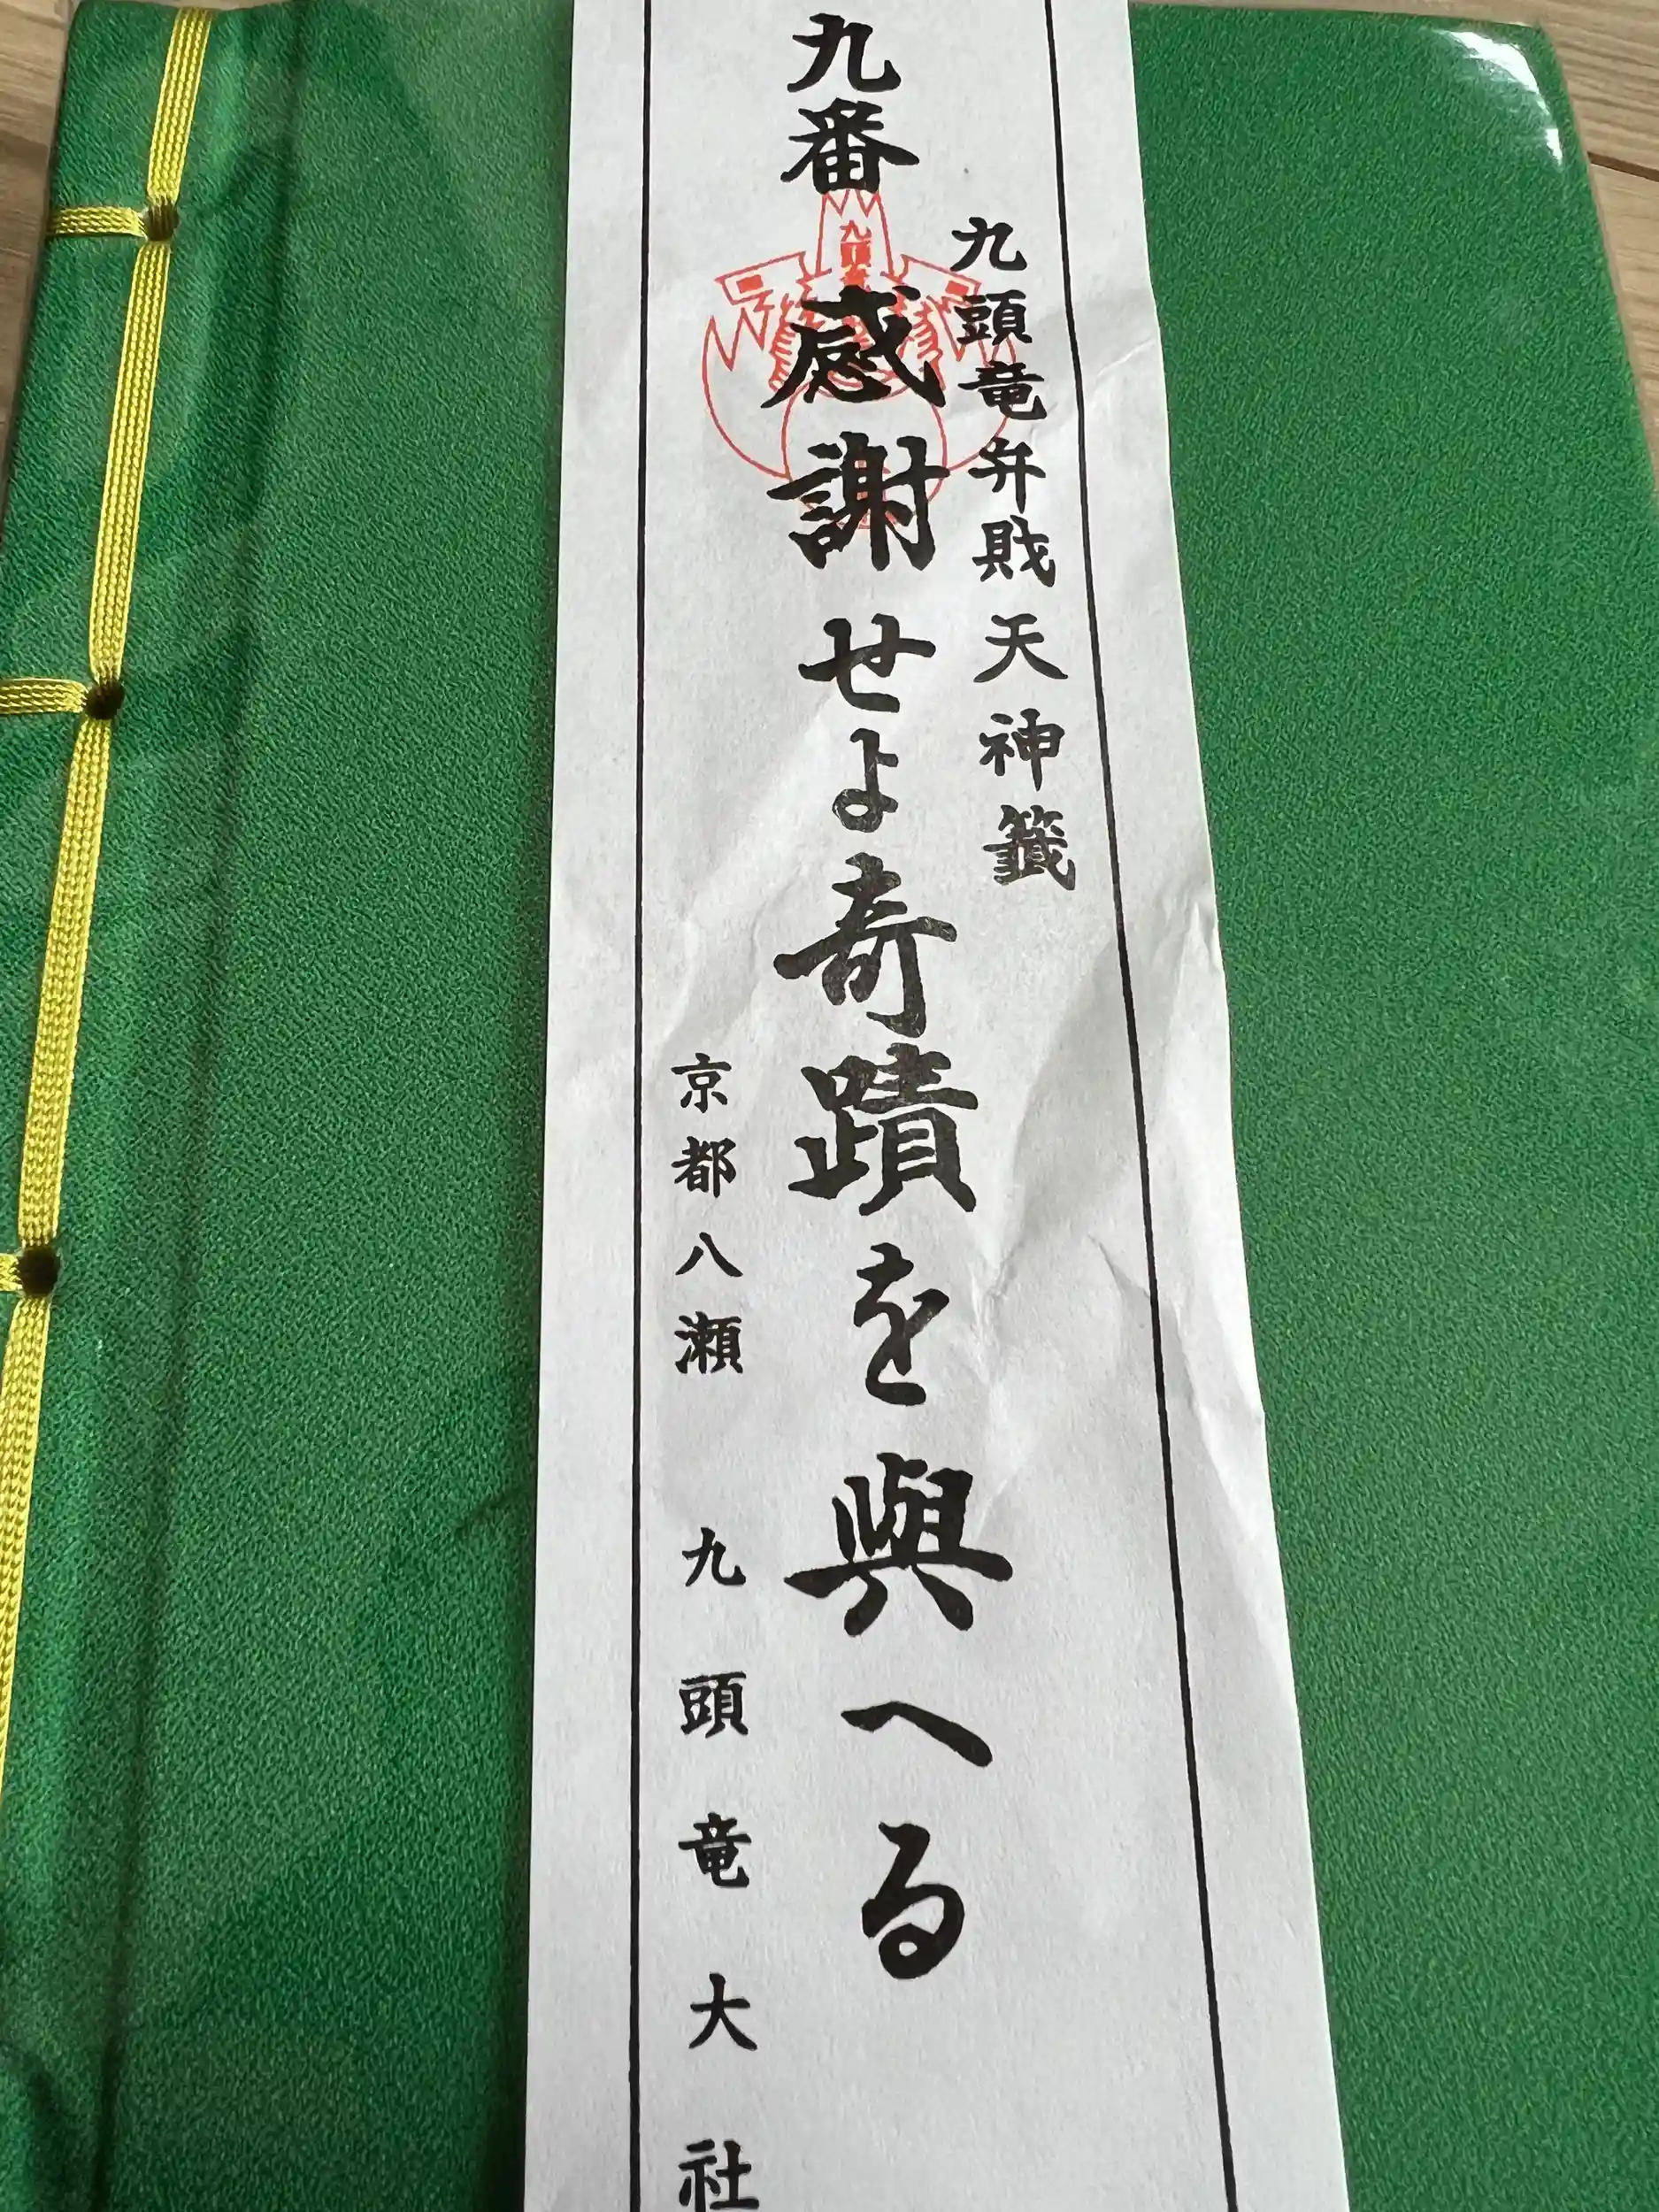 九番
九頭竜弁財天神籤
感謝せよ奇蹟を與へる
京都八瀬 九頭竜大社
九頭竜